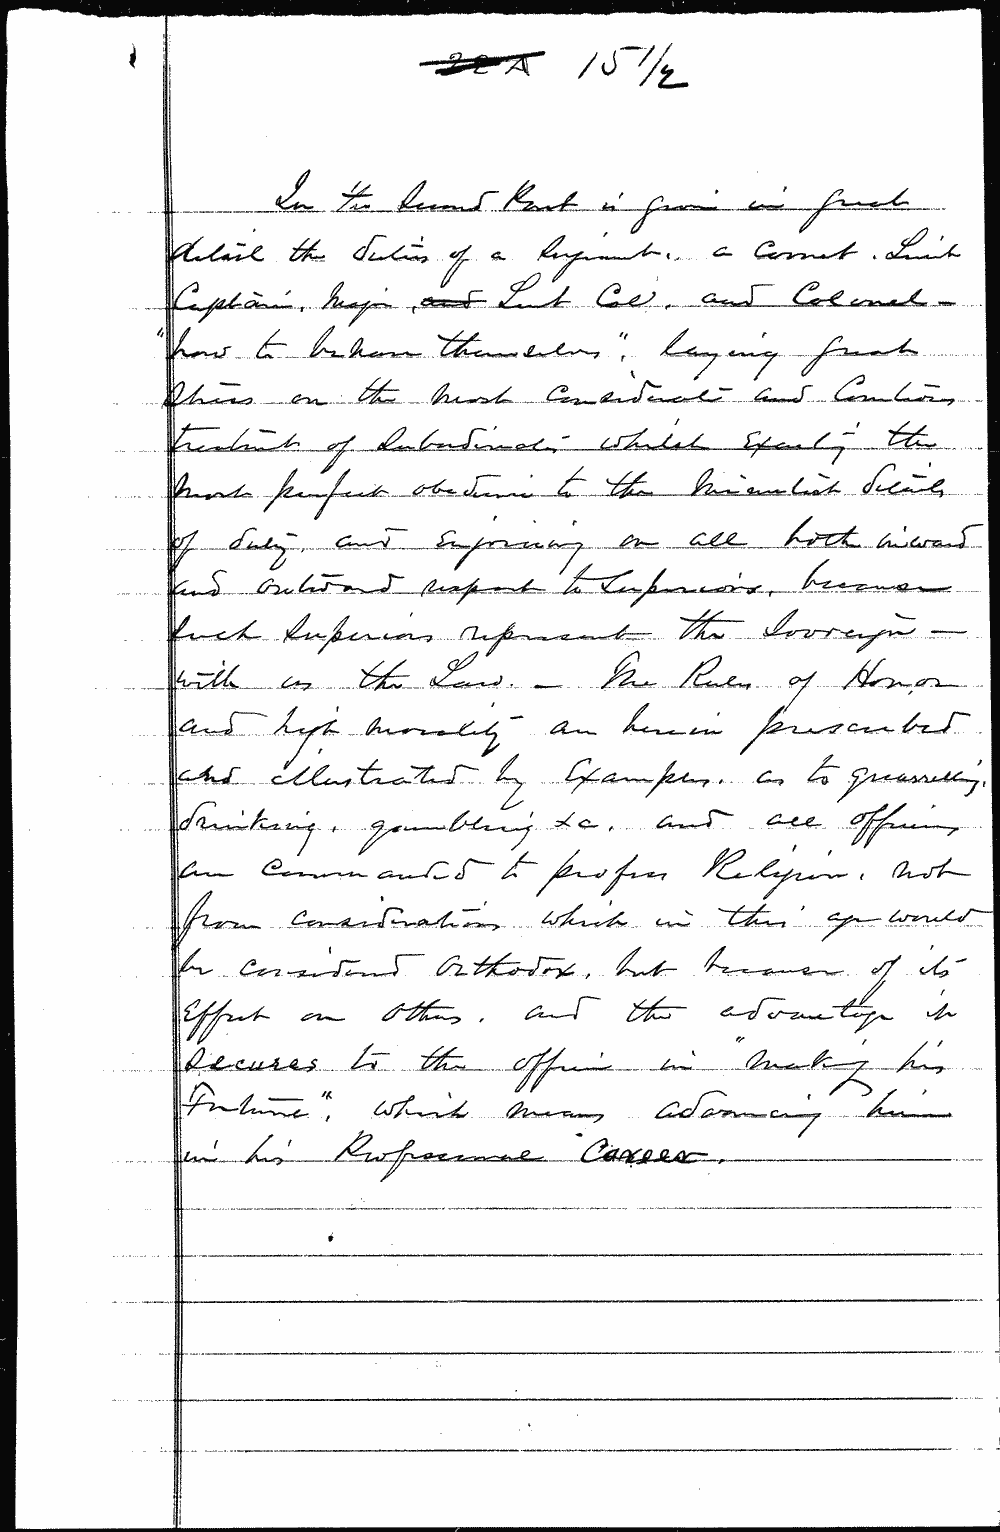 22A 15 1/2
In the Second Part is given in great
detail the duties of a Sergeant, a Cornet, Lieut
Captain, Major, and Lieut Col, and Colonel —
"how to behave themselves", laying great
stress on the most considerate and Courteous
treatment of Subordinates whilst Exacting the
most perfect obedience to the Minutest details
of duty, and enjoining on all both inward
and outward respect to Superiors, because
such Superiors represent the Sovereign —
with us the Law. — The Rules of Honor
and high morality are herein prescribed
and illustrated by Examples, as to quarrelling,
drinking, gambling &c, and all officers
are commanded to profess Religion, not
from considerations which in this age would
be considered Orthodox, but because of its
Effect on others, and the advantage it
secures to the officer in "making his
Fortune", which means advancing him
in his Professional Career.